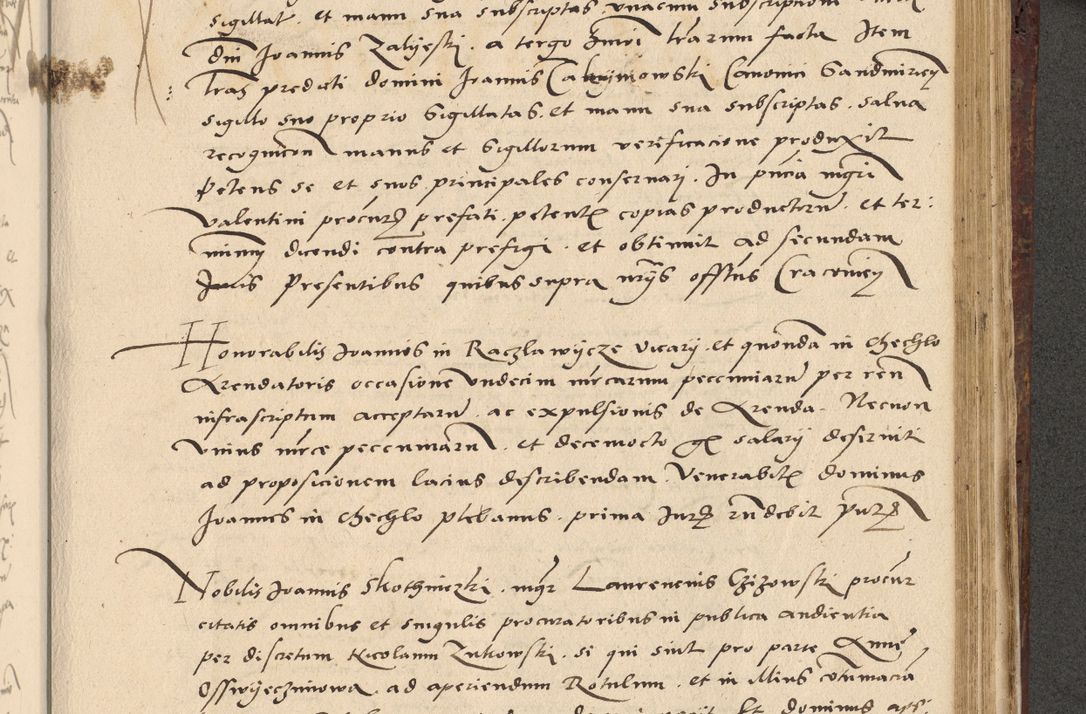 sigillat. et manu sua subscriptas unacum subscriptioni
dni Joannis Zalijeski. a tergo hmoi lrarum facta Item
lras predicti domini Joannis Canonici Sandomirien
sigillo suo proprio Sigillatas. et manu sua subscriptas. salva
recognicon manus et Sigillorum verificacione produxit
Petens se et suos principales conservari. In pncia mgri
Valentini procur prefati. petente copias productoru. et ter:
minu dicendi contra prefigi. et obtinuit ad secundam
Juris Presentibus quibus supra nrijs offtus Cracovien
Honorabilis Joannis in Raczlawijcze vicarij. et quonda in Chechlo
Arendatoris occasione undecim mrcarum pecuniaru per ren
infrascriptum acceptaru. ac expulsionis de Arenda. Necnon
Unius mrce pecuniaru. et decemocto gr salarij deserviti
ad proposicionem lacius describendam. Venerabilis dominus
Joannes in Chechlo plebanus. prima Jur rndebit
Nobilis Joannis Skothniczki. mgr Laurencius Czizowski procur
citatis omnibus et singulis procuratoribus in publica audientia
per discretum Nicolaum Zukowski. si qui sint pro parte Anne
Osswijeczimowa. ad aperiendum Rotulum. et in illius cotumacia